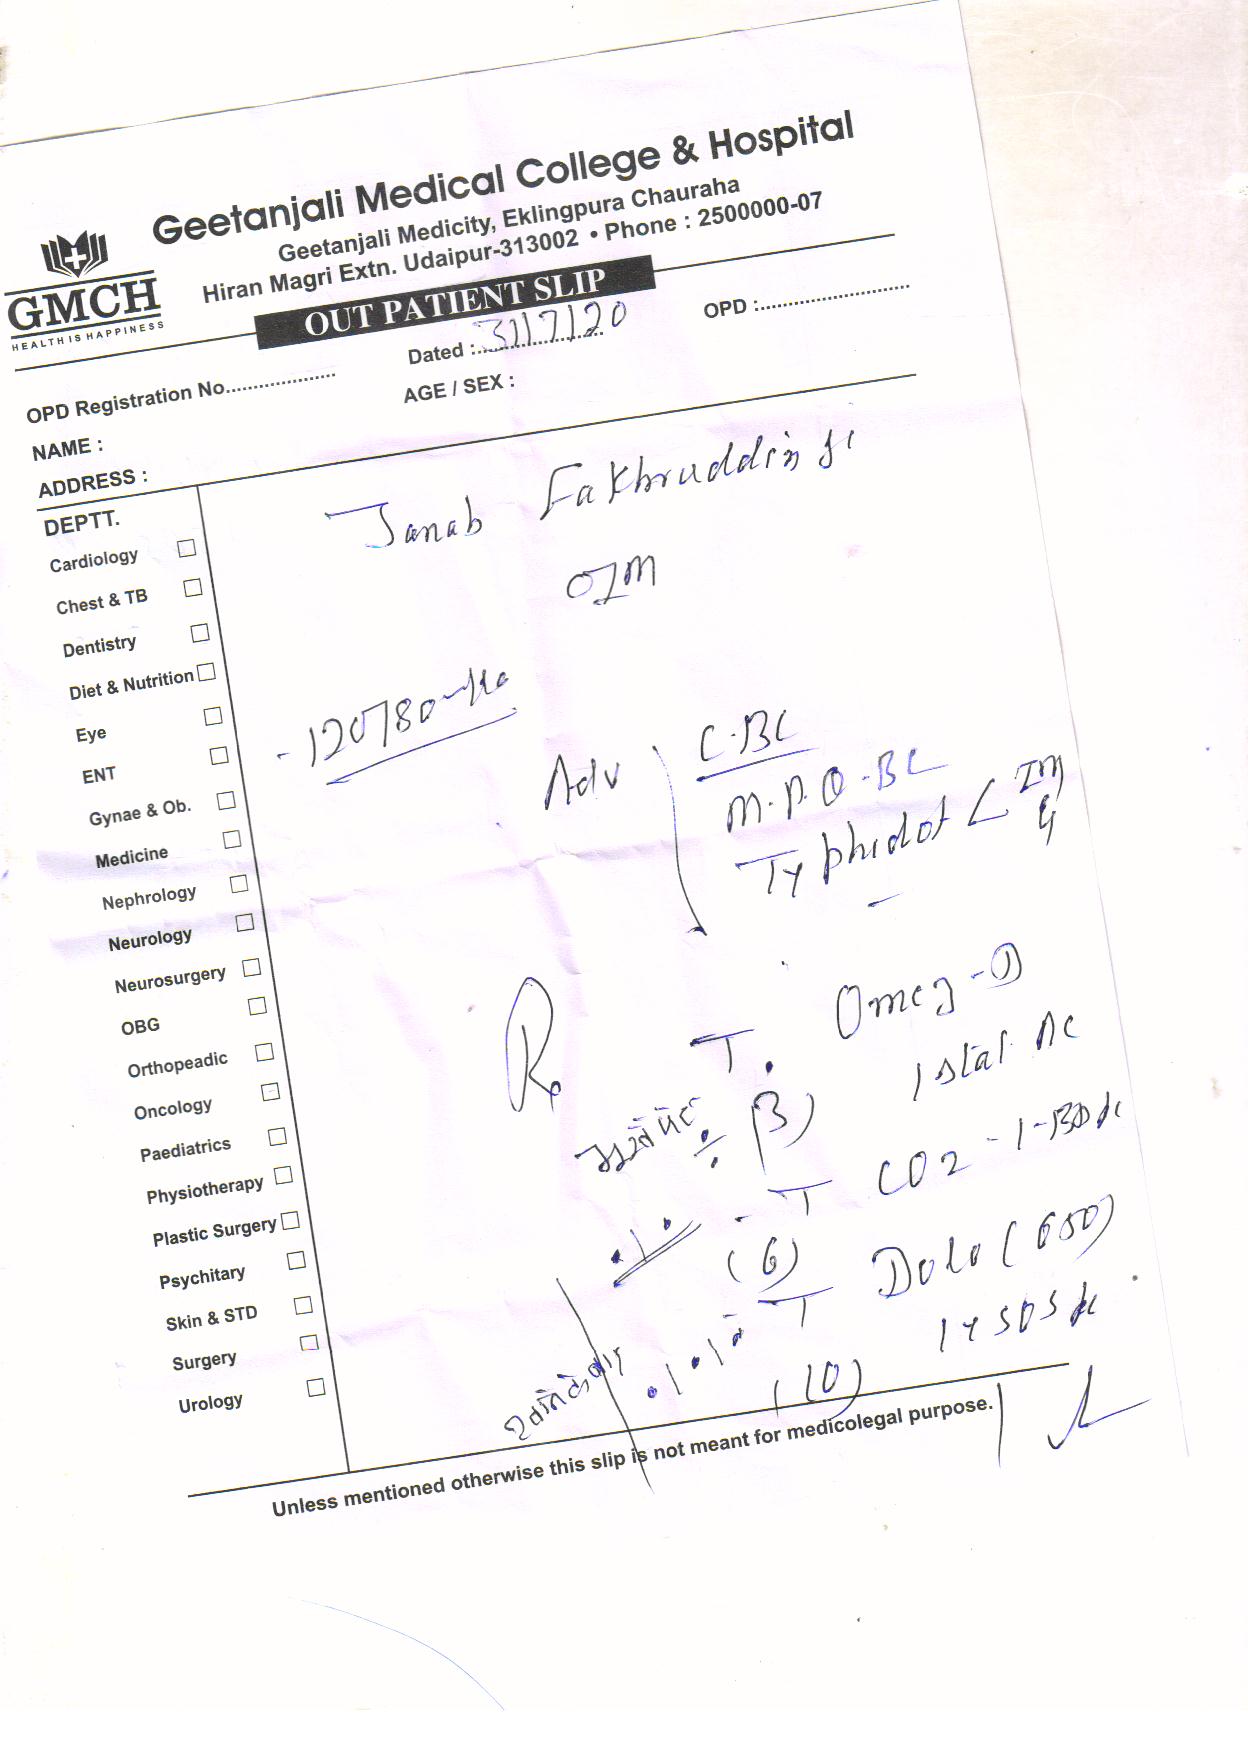 Geetanjali Medical College & Hospital
Geetanjali Medicity, Eklingpura Chauraha
Hiran Magri Extn. Udaipur-313002 • Phone : 2500000-07
GMCH
HEALTH IS HAPPINESS
OUT PATIENT SLIP
OPD Registration No....................
Dated : 31/7/20
OPD :..........................
NAME :
AGE / SEX :
ADDRESS :
DEPTT.
Cardiology
Chest & TB
Dentistry
Diet & Nutrition
Eye
ENT
Gynae & Ob.
Medicine
Nephrology
Neurology
Neurosurgery
OBG
Orthopeadic
Oncology
Paediatrics
Physiotherapy
Plastic Surgery
Psychitary
Skin & STD
Surgery
Urology
Janab Fakhruddin Ji
- 120/80
Adv
C.BC
M.P.Q-BC
Typhidot < IM
G
R
T. Omez-D
(3) 1 stat AC
- T CO2 - 1-BD
(6)
T Dolo (650)
(10) 1 SOS
Unless mentioned otherwise this slip is not meant for medicolegal purpose.